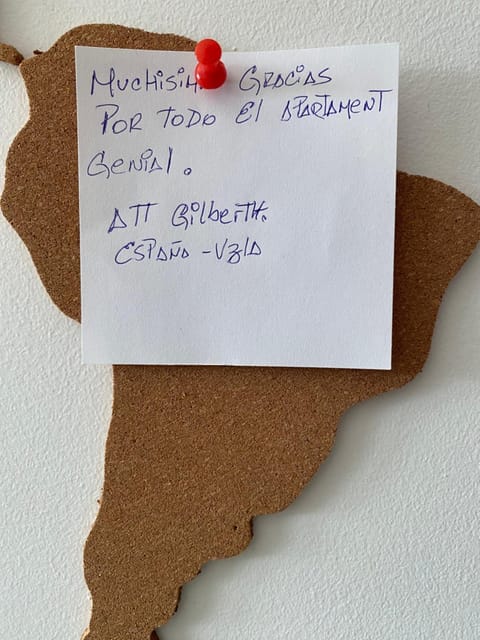 Muchisim Gracias
Por todo El apartament
Genial.
ATT Gilberth.
España - Vzla